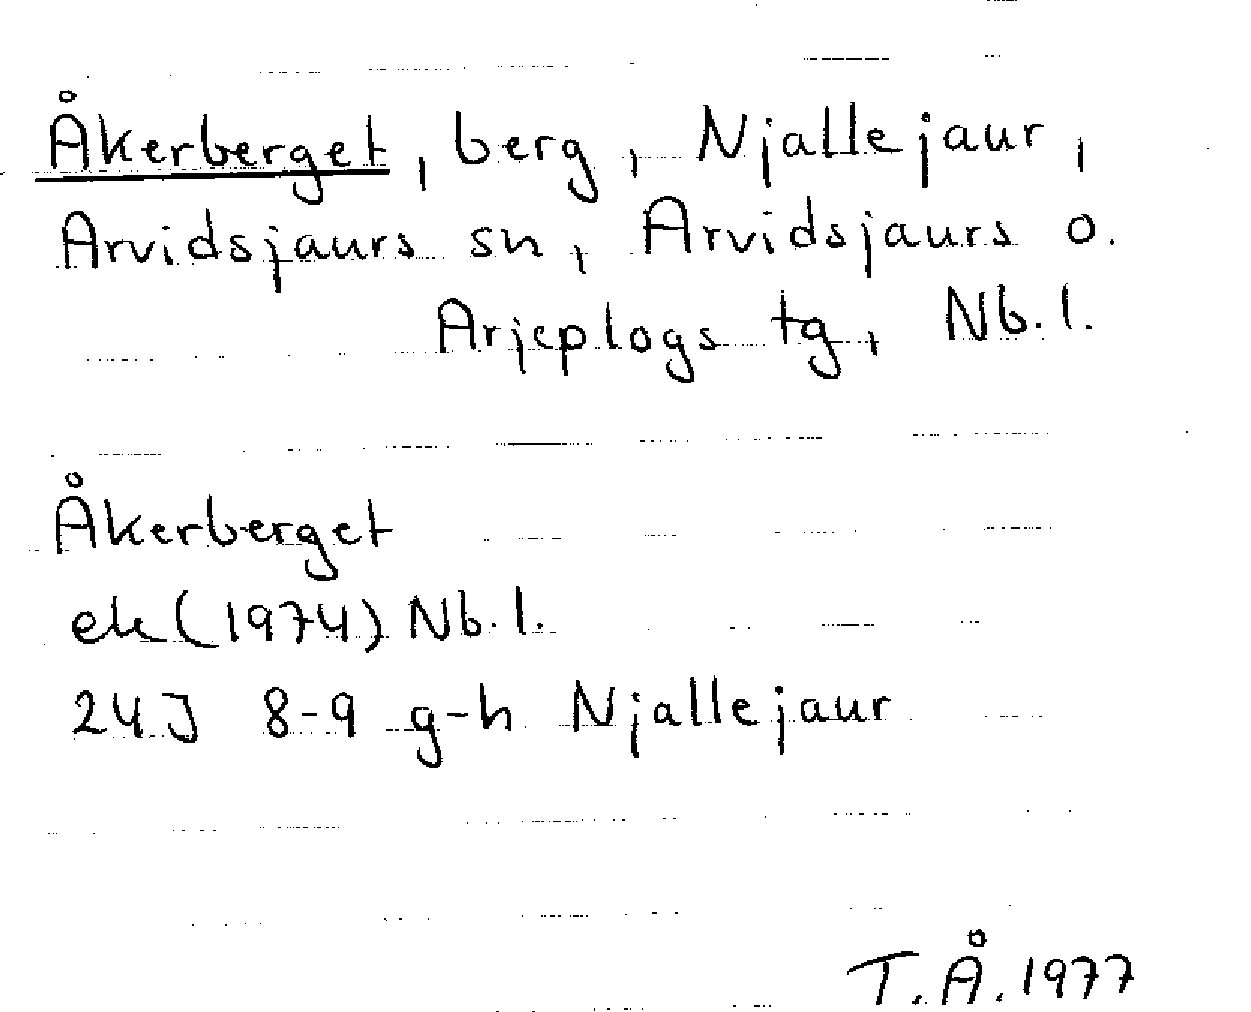 Åkerberget, berg, Njallejaur,
Arvidsjaurs sn, Arvidsjaurs o.
Arjeplogs tg, Nb.l.
Åkerberget
ek (1974) Nb.l.
24J 8-9 g-h Njallejaur
T.Å. 1977